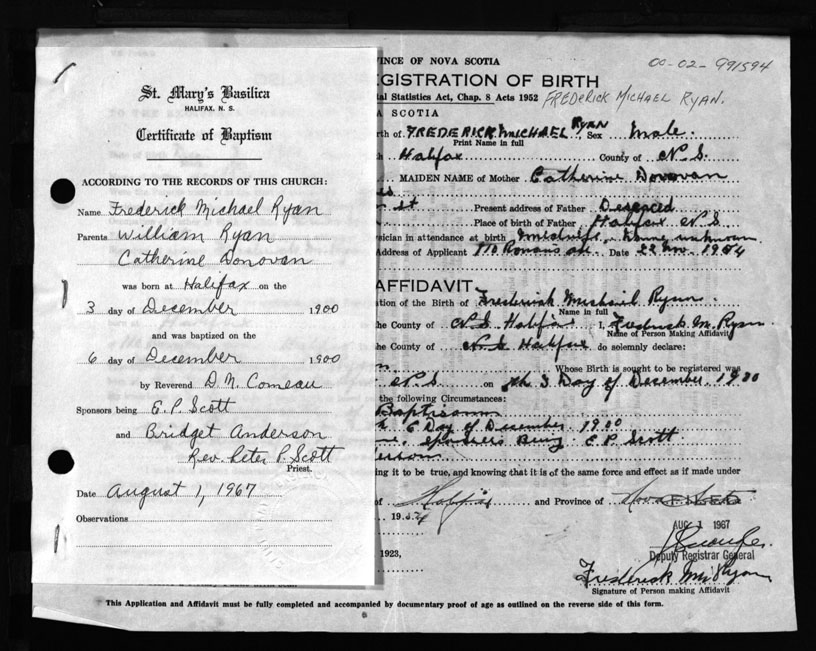 St. Mary's Basilica
HALIFAX, N. S.
Certificate of Baptism
ACCORDING TO THE RECORDS OF THIS CHURCH:
Name Frederick Michael Ryan
Parents William Ryan
Catherine Donovan
was born at Halifax on the
3 day of December 1900
and was baptized on the
6 day of December 1900
by Reverend D. M. Comeau
Sponsors being E. P. Scott
and Bridget Anderson
Rev. Peter P. Scott
Priest.
Date August 1, 1967
Observations
INCE OF NOVA SCOTIA
00-02-991594
GISTRATION OF BIRTH
tal Statistics Act, Chap. 8 Acts 1952 FREDERICK MICHAEL RYAN.
A SCOTIA
rth of FREDERICK MICHAEL RYAN Sex Male.
Print Name in full
Halifax County of N. S.
MAIDEN NAME of Mother Catherine Donovan
st Present address of Father Deseaced
Place of birth of Father Halifax N. S
sician in attendance at birth midwife name unknown
Address of Applicant Date 22
AFFIDAVIT
tion of the Birth of Frederick Michail Ryan
Name in full
he County of N. S Halifax I, Fredrick M. Ryan
Name of Person Making Affidavit
he County of N. S Halifax do solemnly declare:
Whose Birth is sought to be registered was
N. S. on 3 Day of December. 1900
the following Circumstances:
Baptisamm
6 Day of December. 1900
sponsers Being E. P. Scott
ing it to be true, and knowing that it is of the same force and effect as if made under
of Halifax and Province of Nova Scotia
FILED
19
AUG 1 1967
1923,
Deputy Registrar General
Frederick M. Ryan
Signature of Person making Affidavit
This Application and Affidavit must be fully completed and accompanied by documentary proof of age as outlined on the reverse side of this form.